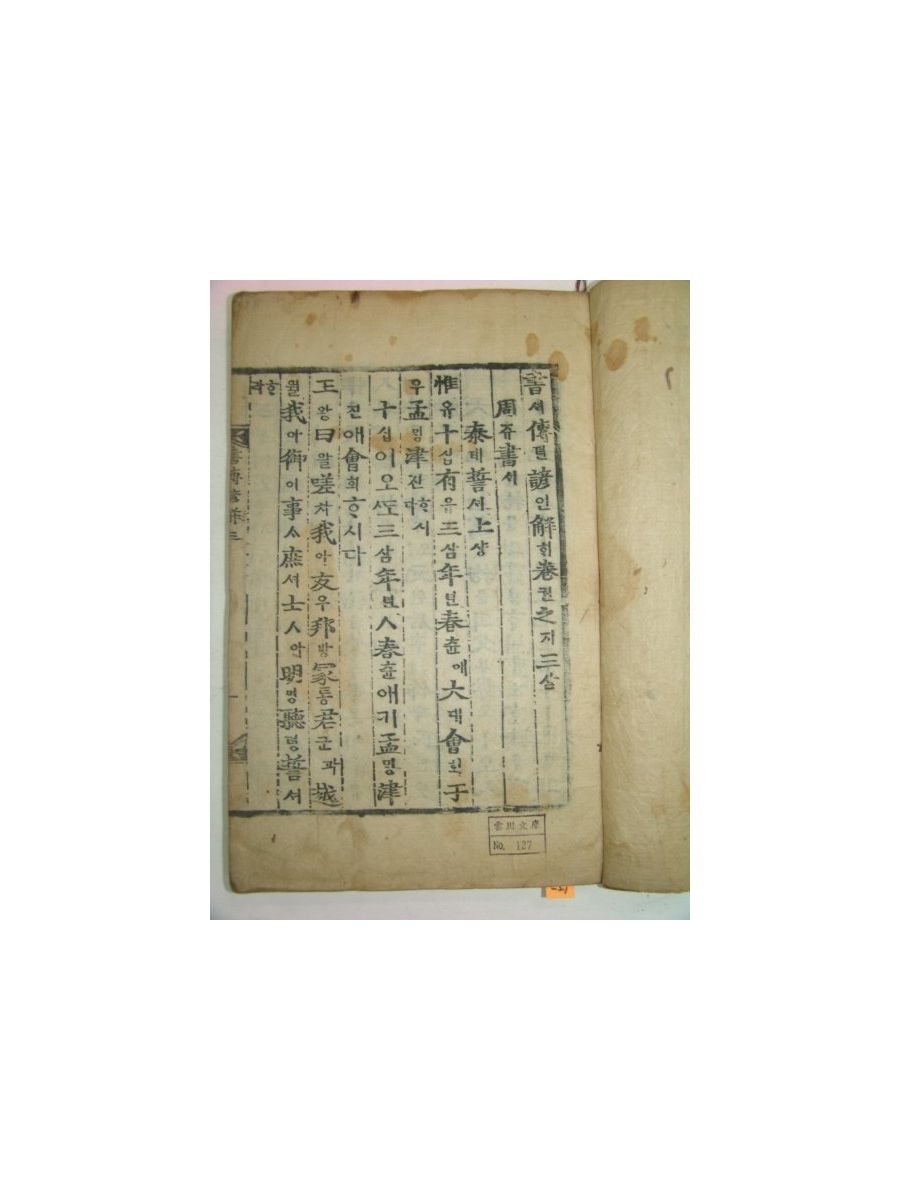 書셔傳뎐諺언解ᄒᆡ卷권之지三삼
周쥬書셔
泰태誓셔上샹
惟유十십有유三삼年년春츈에大대會회于
우孟ᄆᆡᆼ津진ᄒᆞ시다
十십이오ᄯᅩ三삼年년人春츈애기孟ᄆᆡᆼ津
진애會회ᄒᆞ시다
王왕曰왈嗟차我아友우邦방冢통君군과越
월我아御어事ᄉᆞ庶셔士ᄉᆞ아明명聽텽誓셔
ᄒᆞ라
書傳諺解 三
雲川文庫
No. 127